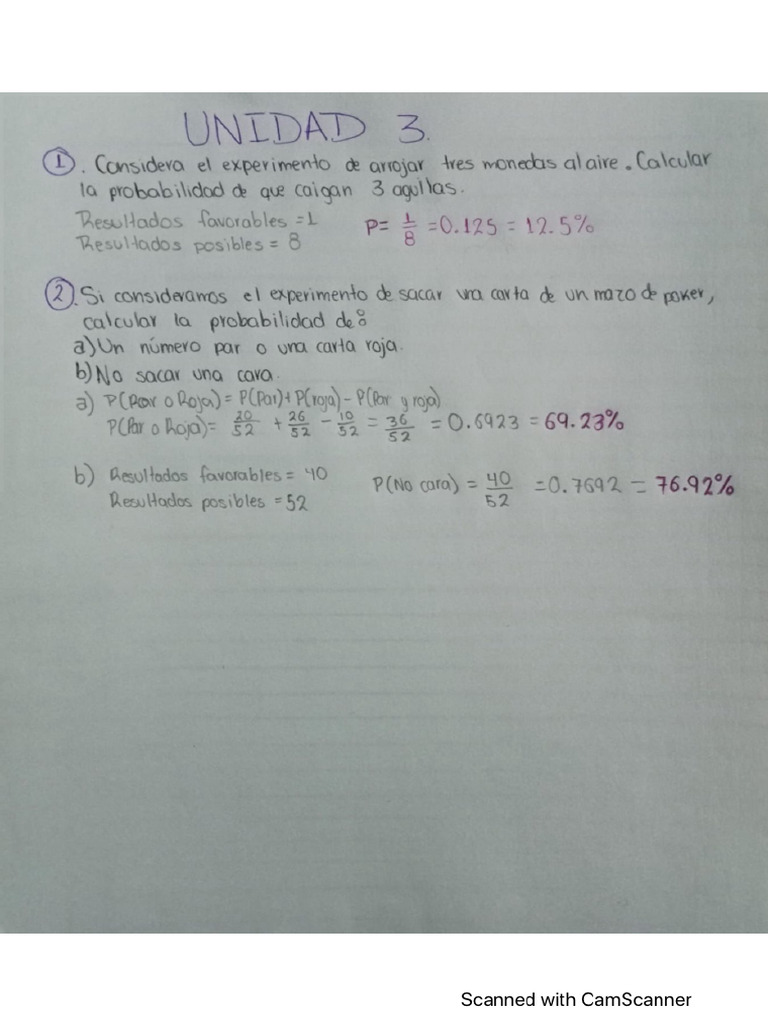 UNIDAD 3.
1. Considera el experimento de arrojar tres monedas al aire. Calcular
la probabilidad de que caigan 3 aguilas.
Resultados favorables = 1
Resultados posibles = 8
P = 1/8 = 0.125 = 12.5%
2. Si consideramos el experimento de sacar una carta de un mazo de poker,
calcular la probabilidad de:
a) Un número par o una carta roja.
b) No sacar una cara.
a) P(Par o Roja) = P(Par) + P(roja) - P(Par y roja)
P(Par o Roja) = 20/52 + 26/52 - 10/52 = 36/52 = 0.6923 = 69.23%
b) Resultados favorables = 40
Resultados posibles = 52
P(No cara) = 40/52 = 0.7692 = 76.92%
Scanned with CamScanner